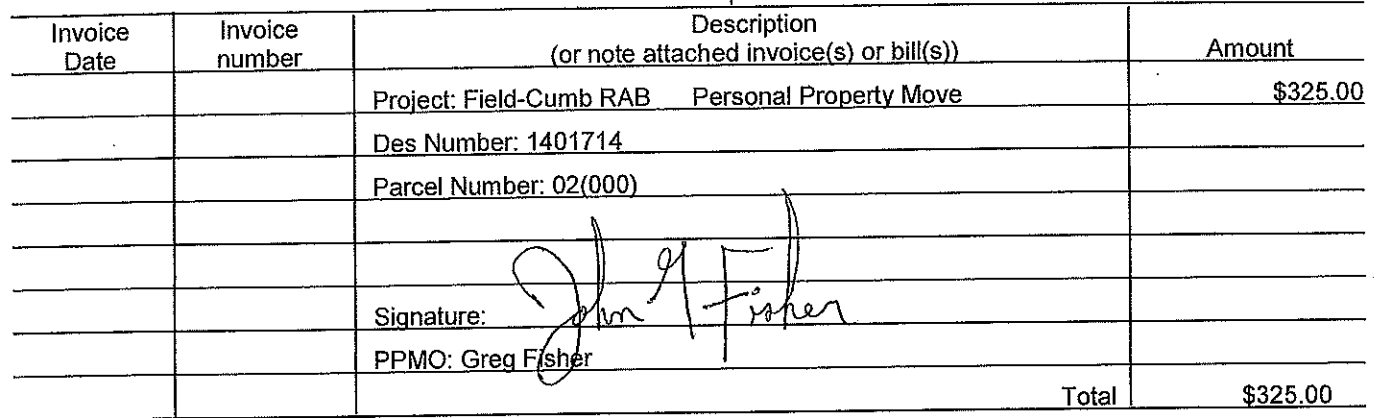 Invoice Date
Invoice number
Description
(or note attached invoice(s) or bill(s))
Amount
Project: Field-Cumb RAB Personal Property Move $325.00
Des Number: 1401714
Parcel Number: 02(000)
Signature: John G Fisher
PPMO: Greg Fisher
Total $325.00